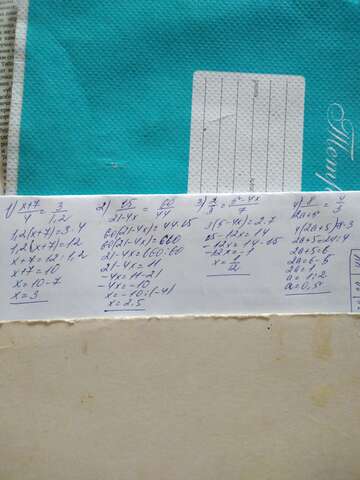 Тетр
1) x+7/4 = 3/1,2
1,2(x+7)=3·4
1,2(x+7)=12
x+7=12:1,2
x+7=10
x=10-7
x=3
2) 15/21-4x = 60/44
60(21-4x)=44·15
60(21-4x)=660
21-4x=660:60
21-4x=11
-4x=11-21
-4x=-10
x=-10:(-4)
x=2.5
3)
3(5-4x)=2.7
15-12x=14
-12x=14-15
-12x=-1
x=1/12
4)
2a+5=6
2a=6-5
2a=1
a=1:2
a=0,5